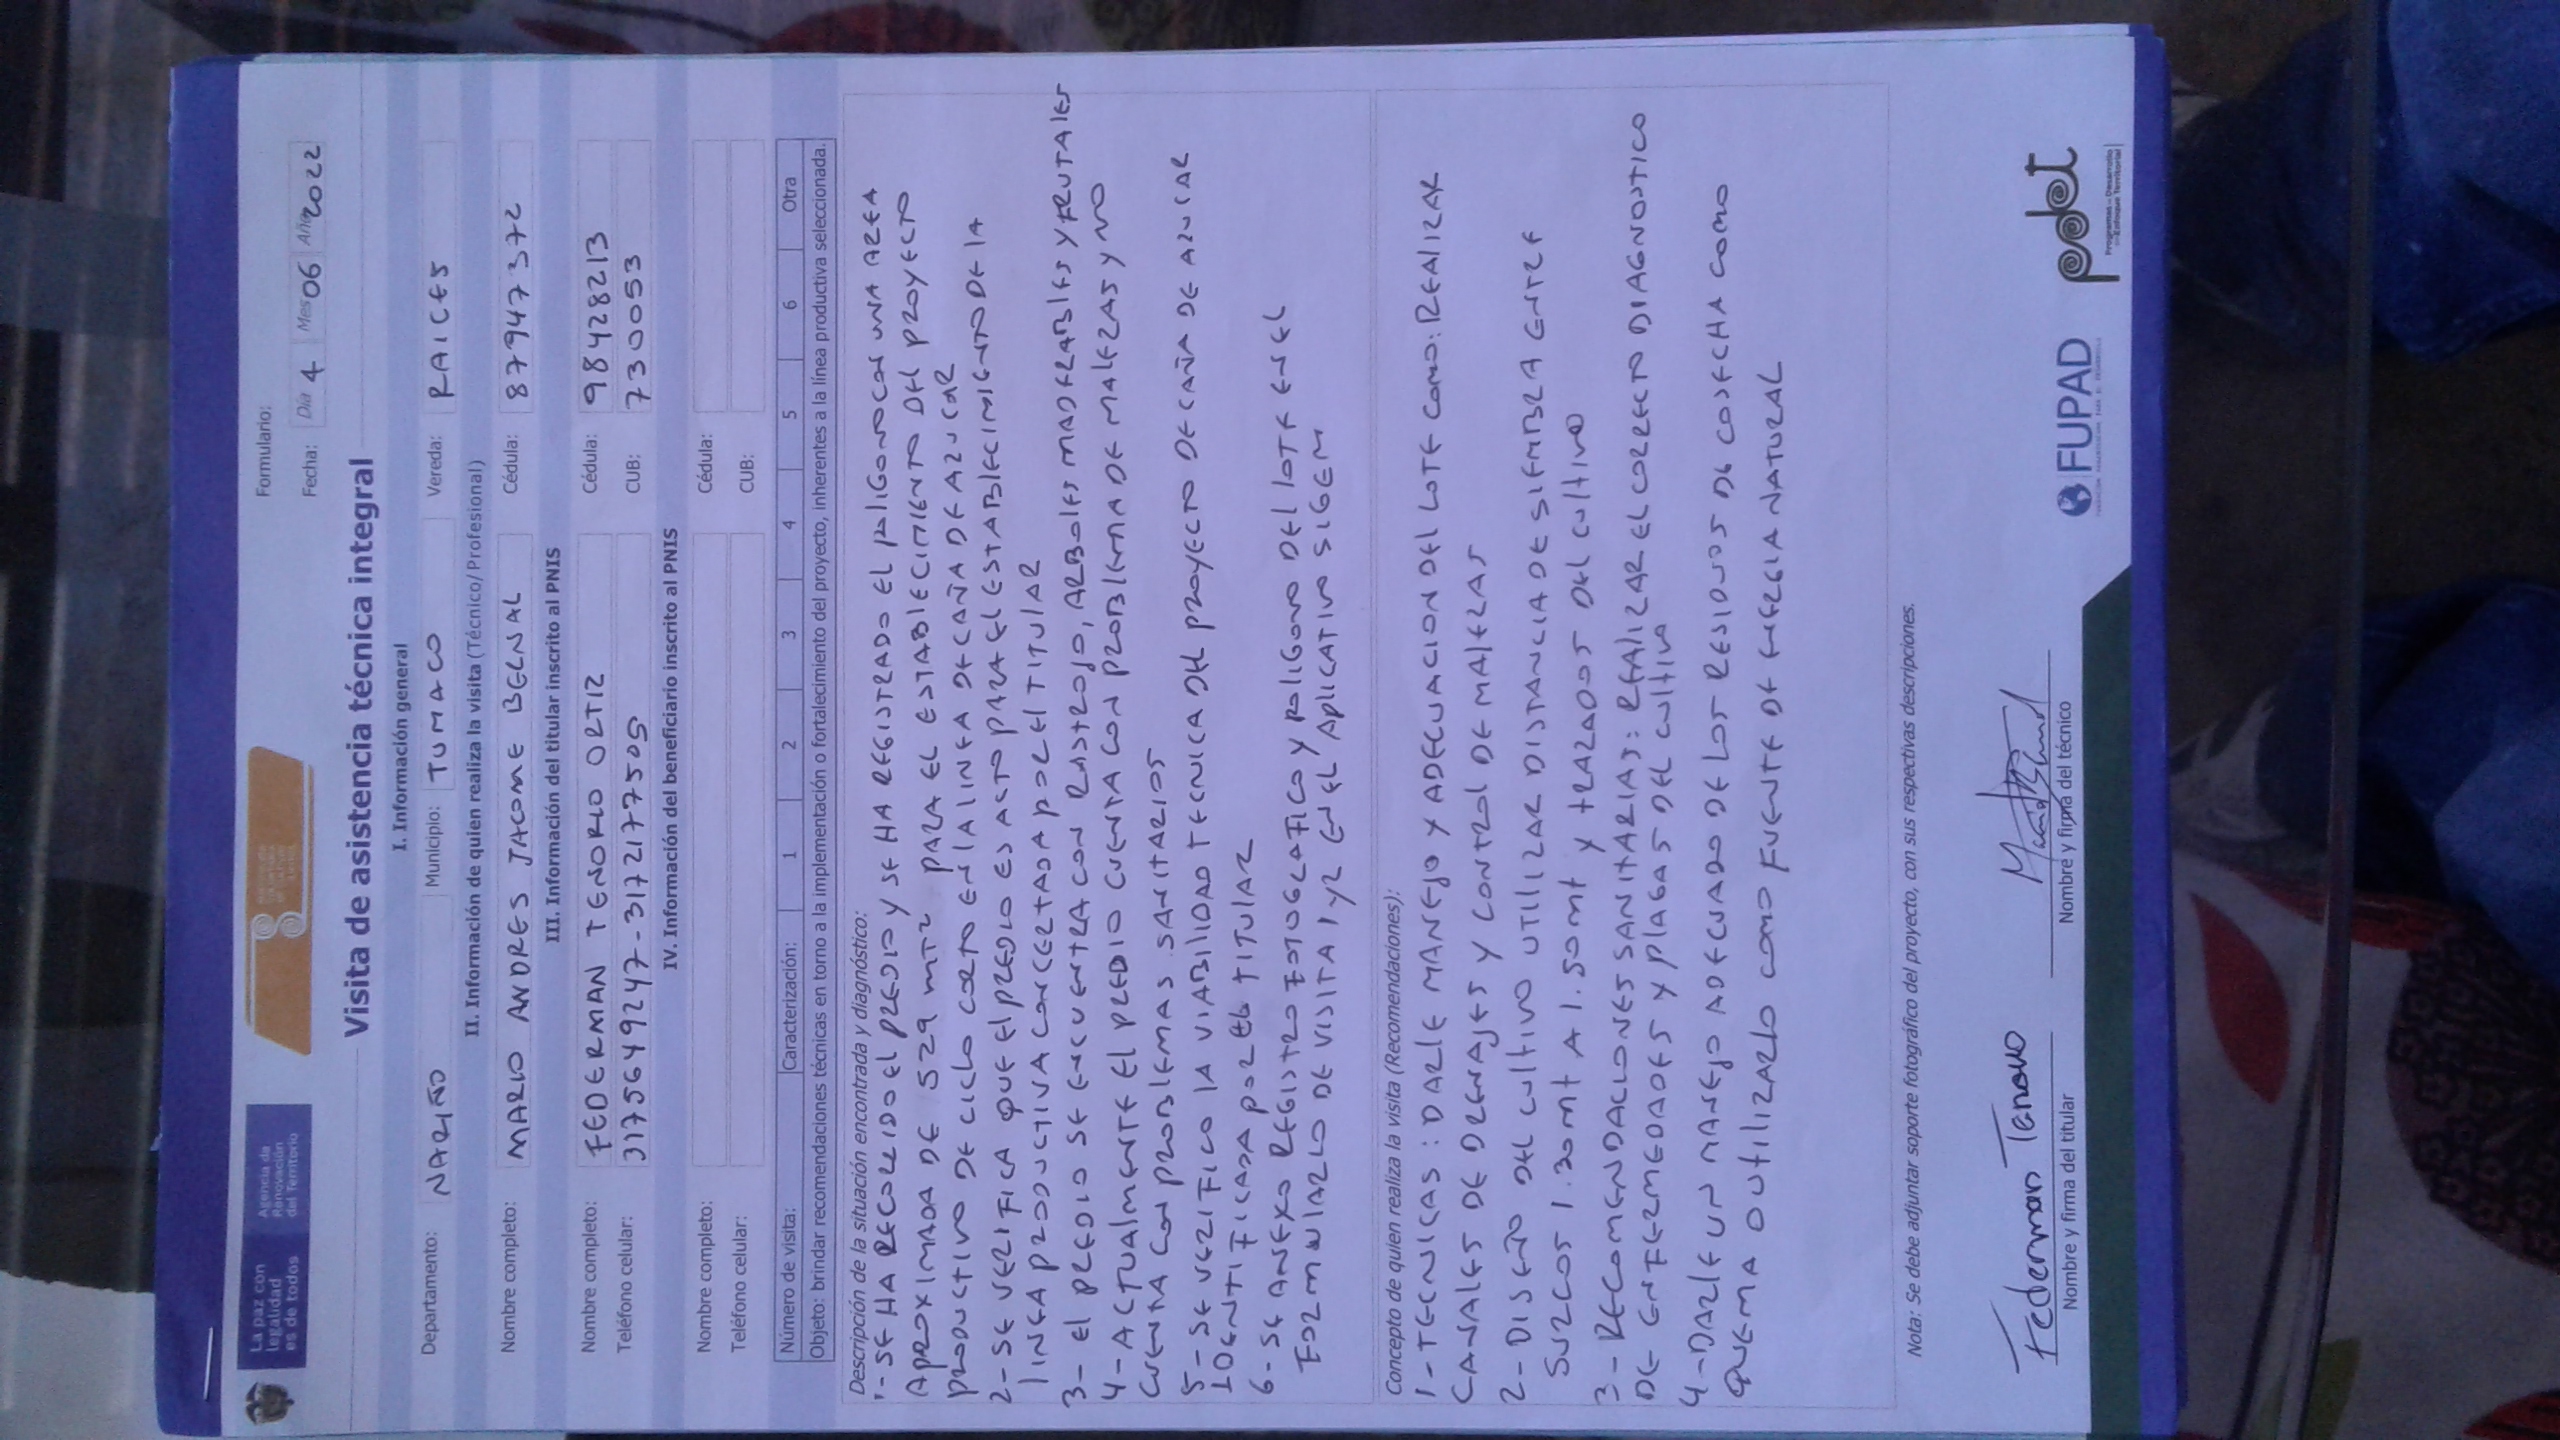 La paz con
legalidad
es de todos
Agencia de
Renovación
del Territorio
Formulario:
Fecha: Día 4 Mes 06 Año 2022
Visita de asistencia técnica integral
I. Información general
Departamento: NARIÑO Municipio: TUMACO Vereda: RAICES
II. Información de quien realiza la visita (Técnico/Profesional)
Nombre completo: MARIO ANDRES JACOME BERNAL Cédula: 87947372
III. Información del titular inscrito al PNIS
Nombre completo: FEDERMAN TENORIO ORTIZ Cédula: 98428213
Teléfono celular: 3175649247-3172177509 CUB: 730053
IV. Información del beneficiario inscrito al PNIS
Nombre completo: Cédula:
Teléfono celular: CUB:
Número de visita: Caracterización: 1 2 3 4 5 6 Otra
Objeto: brindar recomendaciones técnicas en torno a la implementación o fortalecimiento del proyecto, inherentes a la línea productiva seleccionada.
Descripción de la situación encontrada y diagnóstico:
1- SE HA RECORRIDO EL PREDIO Y SE HA REGISTRADO EL POLIGONO CON UNA AREA
APROXIMADA DE 529 MT2 PARA EL ESTABLECIMIENTO DEL PROYECTO
PRODUCTIVO DE CICLO CORTO EN LA LINEA DE CAÑA DE AZUCAR
2- SE VERIFICA QUE EL PREDIO ES APTO PARA EL ESTABLECIMIENTO DE LA
LINEA PRODUCTIVA CONCERTADA POR EL TITULAR
3- EL PREDIO SE ENCUENTRA CON RASTROJO, ARBOLES MADERABLES Y FRUTALES
4- ACTUALMENTE EL PREDIO CUENTA CON PROBLEMA DE MALEZAS Y NO
CUENTA CON PROBLEMAS SANITARIOS
5- SE VERIFICO LA VIABILIDAD TECNICA DEL PROYECTO DE CAÑA DE AZUCAR
IDENTIFICADA POR EL TITULAR
6- SE ANEXO REGISTRO FOTOGRAFICO Y POLIGONO DEL LOTE EN EL
FORMULARIO DE VISITA 1 Y 2 EN EL APLICATIVO SIGEM
Concepto de quien realiza la visita (Recomendaciones):
1- TECNICAS: DARLE MANEJO Y ADECUACION DEL LOTE COMO: REALIZAR
CANALES DE DRENAJES Y CONTROL DE MALEZAS
2- DISEÑO DEL CULTIVO UTILIZAR DISTANCIA DE SIEMBRA ENTRE
SURCOS 1.30MT A 1.50MT Y TRAZADOS DEL CULTIVO
3- RECOMENDACIONES SANITARIAS: REALIZAR EL CORRECTO DIAGNOSTICO
DE ENFERMEDADES Y PLAGAS DEL CULTIVO
4- DARLE UN MANEJO ADECUADO DE LOS RESIDUOS DE COSECHA COMO
QUEMA O UTILIZARLO COMO FUENTE DE ENERGIA NATURAL
Nota: Se debe adjuntar soporte fotográfico del proyecto, con sus respectivas descripciones.
Federman Tenorio
Nombre y firma del titular
Nombre y firma del técnico
FUPAD
pdet
Programas de Desarrollo
con Enfoque Territorial